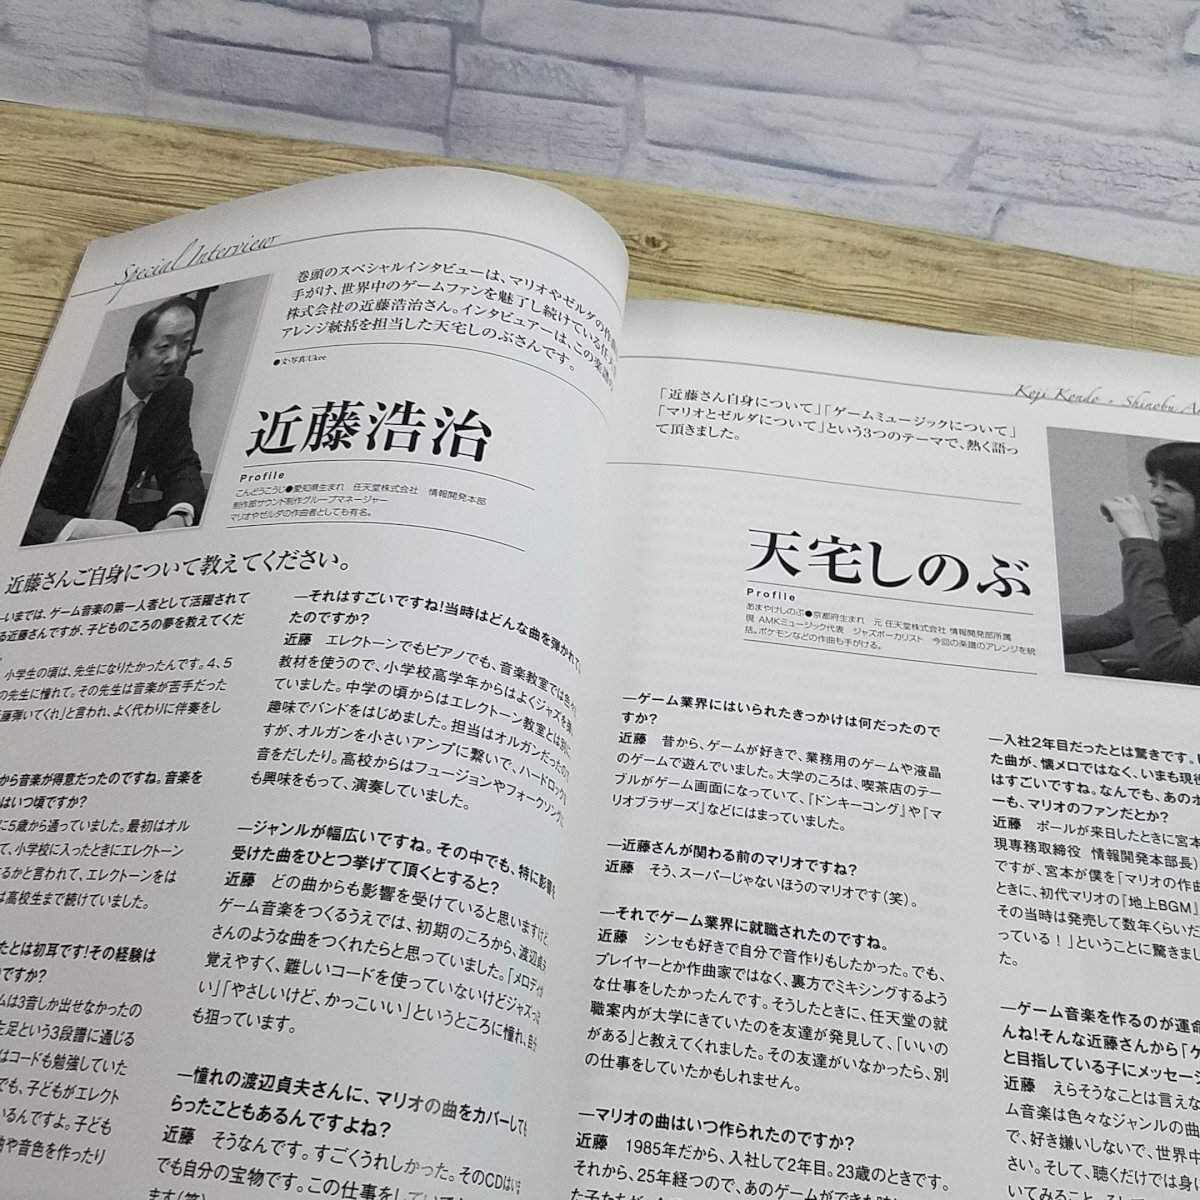 Special Interview
巻頭のスペシャルインタビューは、マリオやゼルダの作曲
手がけ、世界中のゲームファンを魅了し続けている任天
株式会社の近藤浩治さん。インタビュアーは、この楽譜の
アレンジ統括を担当した天宅しのぶさんです。
●文・写真:Ukee
近藤浩治
Profile
こんどうこうじ●愛知県生まれ 任天堂株式会社 情報開発本部
制作部サウンド制作グループマネージャー
マリオやゼルダの作曲者としても有名。
近藤さんご自身について教えてください。
―いまでは、ゲーム音楽の第一人者として活躍されて
る近藤さんですが、子どものころの夢を教えてくだ
小学生の頃は、先生になりたかったんです。4、5
の先生に憧れて。その先生は音楽が苦手だった
藤弾いてくれ」と言われ、よく代わりに伴奏をし
から音楽が得意だったのですね。音楽を
はいつ頃ですか?
に5歳から通っていました。最初はオル
て、小学校に入ったときにエレクトーン
るかと言われて、エレクトーンをは
は高校生まで続けていました。
たとは初耳です!その経験は
ですか?
ムは3音しか出せなかったの
と足という3段譜に通じる
はコードも勉強していた
でも、子どもがエレクト
いるんですよ。子ども
曲や音色を作ったり
―それはすごいですね!当時はどんな曲を弾かれて
たのですか?
近藤 エレクトーンでもピアノでも、音楽教室では
教材を使うので、小学校高学年からはよくジャズを
ていました。中学の頃からはエレクトーン教室とは別に
趣味でバンドをはじめました。担当はオルガンだったの
すが、オルガンを小さいアンプに繋いで、ハードロック
音をだしたり。高校からはフュージョンやフォークソングに
も興味をもって、演奏していました。
―ジャンルが幅広いですね。その中でも、特に影響を
受けた曲をひとつ挙げて頂くとすると?
近藤 どの曲からも影響を受けていると思いますけど、
ゲーム音楽をつくるうえでは、初期のころから、渡辺貞夫
さんのような曲をつくれたらと思っていました。「メロディが
覚えやすく、難しいコードを使っていないけどジャズっぽ
い」「やさしいけど、かっこいい」というところに憧れ、自分
も狙っています。
―憧れの渡辺貞夫さんに、マリオの曲をカバーしても
らったこともあるんですよね?
近藤 そうなんです。すごくうれしかった。そのCDはいま
でも自分の宝物です。この仕事をしていて
ます(笑)
Koji Kondo × Shinobu A
「近藤さん自身について」「ゲームミュージックについて」
「マリオとゼルダについて」という3つのテーマで、熱く語っ
て頂きました。
天宅しのぶ
Profile
あまやけしのぶ●京都府生まれ 元 任天堂株式会社 情報開発部所属
現 AMKミュージック代表 ジャズボーカリスト 今回の楽譜のアレンジを統
括。ポケモンなどの作曲も手がける。
―ゲーム業界にはいられたきっかけは何だったので
すか?
近藤 昔から、ゲームが好きで、業務用のゲームや液晶
のゲームで遊んでいました。大学のころは、喫茶店のテー
ブルがゲーム画面になっていて、『ドンキーコング』や『マ
リオブラザーズ』などにはまっていました。
―近藤さんが関わる前のマリオですね?
近藤 そう、スーパーじゃないほうのマリオです(笑)。
―それでゲーム業界に就職されたのですね。
近藤 シンセも好きで自分で音作りもしたかった。でも、
プレイヤーとか作曲家ではなく、裏方でミキシングするよう
な仕事をしたかったんです。そうしたときに、任天堂の就
職案内が大学にきていたのを友達が発見して、「いいの
がある」と教えてくれました。その友達がいなかったら、別
の仕事をしていたかもしれません。
―マリオの曲はいつ作られたのですか?
近藤 1985年だから、入社して2年目。23歳のときです。
それから、25年経つので、あのゲームができた時に
―入社2年目だったとは驚きです。
た曲が、懐メロではなく、いまも現役
はすごいですね。なんでも、あのポ
ーも、マリオのファンだとか?
近藤 ポールが来日したときに宮本
現専務取締役 情報開発本部長)
ですが、宮本が僕を「マリオの作曲
ときに、初代マリオの『地上BGM』
その当時は発売して数年くらいだ
っている!」ということに驚きまし
た。
―ゲーム音楽を作るのが運命
んね!そんな近藤さんから「ゲ
と目指している子にメッセージ
近藤 えらそうなことは言えな
ム音楽は色々なジャンルの曲
で、好き嫌いしないで、世界中
さい。そして、聴くだけでは身に